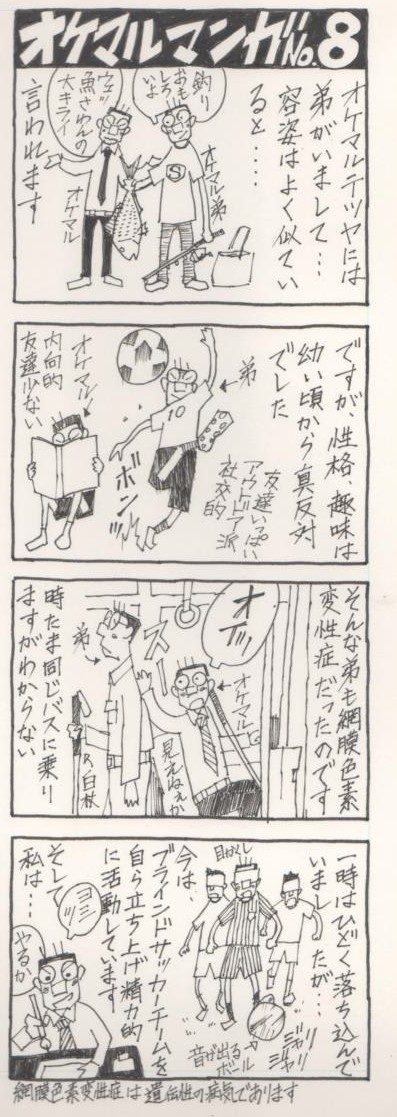 オケマルマンガNo.8
オケマルテツヤには
弟がいまして…
容姿はよく似てい
ると…
言われます
釣り
おも
しろ
いよ
ウェッ
魚さわんの
大キライ
オケマル弟
オケマル
S
ですが、性格、趣味は
幼い頃から真反対
でした
弟
10
友達いっぱい
アウトドア派
社交的
ボン
オケマル
内向的
友達少ない
そんな弟も網膜色素
変性症だったのです
オイッ
スー
オケマル
見えねぇか
弟
白杖
時たま同じバスに乗り
ますがわからない
一時はひどく落ち込んで
いまし
たが…
目かくし
今は、
ブラインドサッカーチームを
自ら立ち上げ精力的
に活動しています
ジャリ
ジャリ
音が出る
ボール
そして
私は…
やるか
網膜色素変性症は遺伝性の病気であります